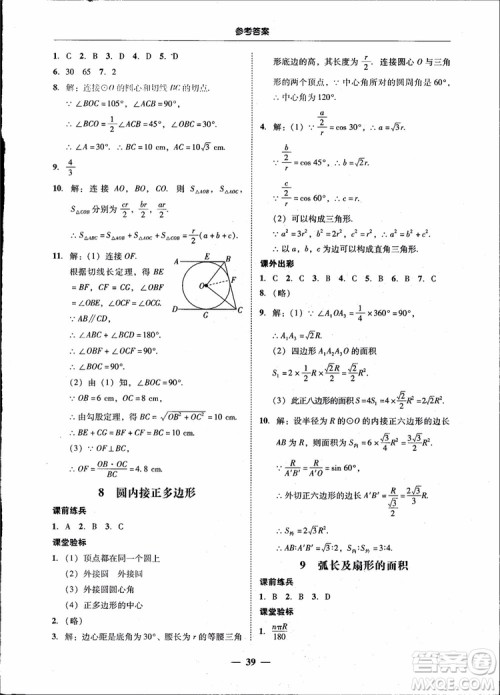 参考答案
1. C  2. B  3. A  4. B  5. D
6. 30  65  7. 2
8. 解：连接⊙O的圆心和切线的切点.
∵ ∠BOC=105°，∠ACB=90°.
∵ ∠BCO=1/2∠ACB=45°，∠OBC=30°.
∴ ∠A=30°，BC=10 cm，AC=10√3 cm.
9. 4/3
10. 解：连接 AO，BO，CO. 则 S△AOB，S△AOC，
S△COB分别为 cr/2，br/2，ar/2.
∴ S△ABC=S△AOB+S△AOC+S△COB=r/2(a+b+c).
11. 解：(1) 连接 OF.
根据切线长定理，得 BE
=BF，CF=CG，∠OBF
=∠OBE，∠OCF=∠OCG.
∵ AB∥CD，
∴ ∠ABC+∠BCD=180°.
∴ ∠OBF+∠OCF=90°.
∴ ∠BOC=90°.
(2) 由(1)知，∠BOC=90°.
∵ OB=6 cm，OC=8 cm，
∴ 由勾股定理得 BC=√(OB²+OC²)=10 cm.
∴ BE+CG=BC=10 cm.
(3) ∵ OF⊥BC，
∴ OF=OB·OC/BC=4.8 cm.
A E B
O F
D G C
8 圆内接正多边形
课前练兵
1. A  2. B  3. C
课堂验标
1. (1) 顶点都在同一个圆上
(2) 外接圆  外接圆
(3) 外接圆圆心角
(4) 正多边形的中心
2. B
3. 解：边心距是底角为30°、腰长为r的等腰三角
形底边的高，其长度为 r/2. 连接圆心O与三角
形顶点，其中心角所对的圆周角为60°.
∴ 中心角为120°.
4. 解：(1) ∵ (a/2)/r=cos 30°，∴ a=√3r.
∵ (b/2)/r=cos 45°，∴ b=√2r.
∵ (c/2)/r=cos 60°，∴ c=r.
(2) 可以构成三角形.
∵ a²=3r²，b²=2r²，c²=r²，∴ a²=b²+c².
∴ 以 a，b，c 为边可构成直角三角形.
课外出彩
1. C  2. C  3. A  4. D  5. B  6. B  7. C
8. (略)
9. 解：(1) ∵ ∠A₁OA₃=1/4×360°=90°，
∴ A₁A₃=√2R.
(2) 四边形 A₁A₂A₃O 的面积
S₁=2×1/2R×√2/2R=√2/2R².
(3) 此正八边形的面积 S=4S₁=4×√2/2R²=2√2R².
10. 解：设半径为R的⊙O的内接正六边形的边长
为AB，其面积为 S内=6×√3/4R²=3√3/2R².
∵ R/A′B′=R/A′O=sin 60°，
∴ 外切正六边形的边长 A′B′=2√3/3R.
∴ S外=2√3R².
∴ AB∶A′B′=√3∶2，S内∶S外=3∶4.
9 弧长及扇形的面积
课前练兵
1. B  2. B  3. D
课堂验标
1. nπR/180
— 39 —